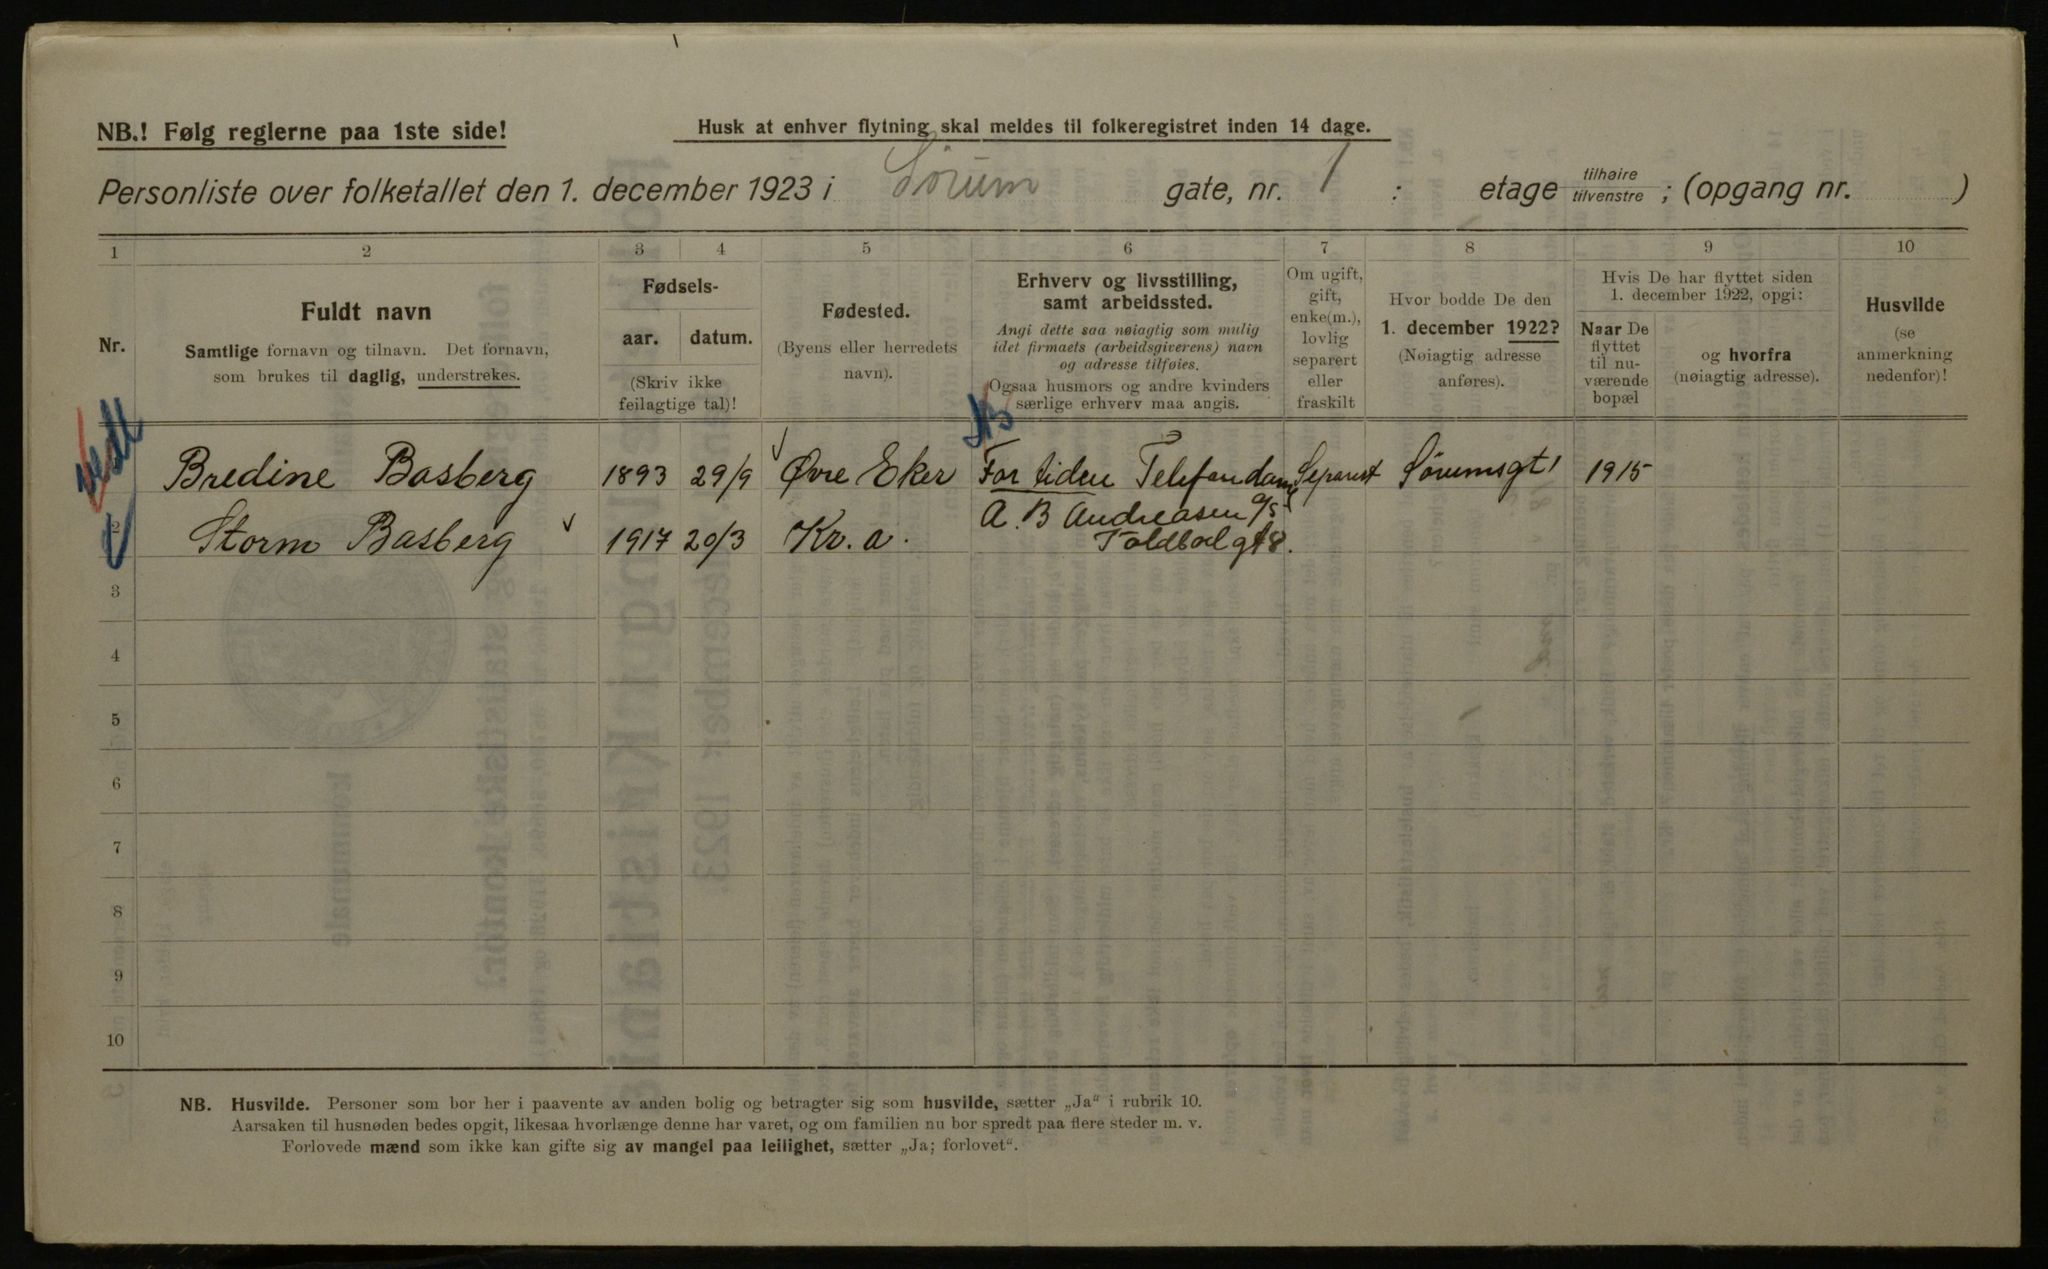 NB.! Følg reglerne paa 1ste side!
Husk at enhver flytning skal meldes til folkeregistret inden 14 dage.
Personliste over folketallet den 1. december 1923 i Sörum gate, nr. 1 : etage tilhøire tilvenstre ; (opgang nr. )
1 2 3 4 5 6 7 8 9 10
Nr.
Fuldt navn
Samtlige fornavn og tilnavn. Det fornavn,
som brukes til daglig, understrekes.
Fødsels-
aar. datum.
(Skriv ikke
feilagtige tal)!
Fødested.
(Byens eller herredets
navn).
Erhverv og livsstilling,
samt arbeidssted.
Angi dette saa nøiagtig som mulig
idet firmaets (arbeidsgiverens) navn
og adresse tilføies.
Ogsaa husmors og andre kvinders
særlige erhverv maa angis.
Om ugift,
gift,
enke(m.),
lovlig
separert
eller
fraskilt
Hvor bodde De den
1. december 1922?
(Nøiagtig adresse
anføres).
Hvis De har flyttet siden
1. december 1922, opgi:
Naar De
flyttet
til nu-
værende
bopæl
og hvorfra
(nøiagtig adresse).
Husvilde
(se
anmerkning
nedenfor)!
Bredine Basberg 1893 29/9 Øvre Eker For tiden Telefondame Separert Sörumsgt 1 1915
A. B Andreasen a/s
2 Storm Basberg 1917 20/3 Kr. a. Toldbodgt 8.
3
4
5
6
7
8
9
10
NB. Husvilde. Personer som bor her i paavente av anden bolig og betragter sig som husvilde, sætter „Ja“ i rubrik 10.
Aarsaken til husnøden bedes opgit, likesaa hvorlænge denne har varet, og om familien nu bor spredt paa flere steder m. v.
Forlovede mænd som ikke kan gifte sig av mangel paa leilighet, sætter „Ja; forlovet“.